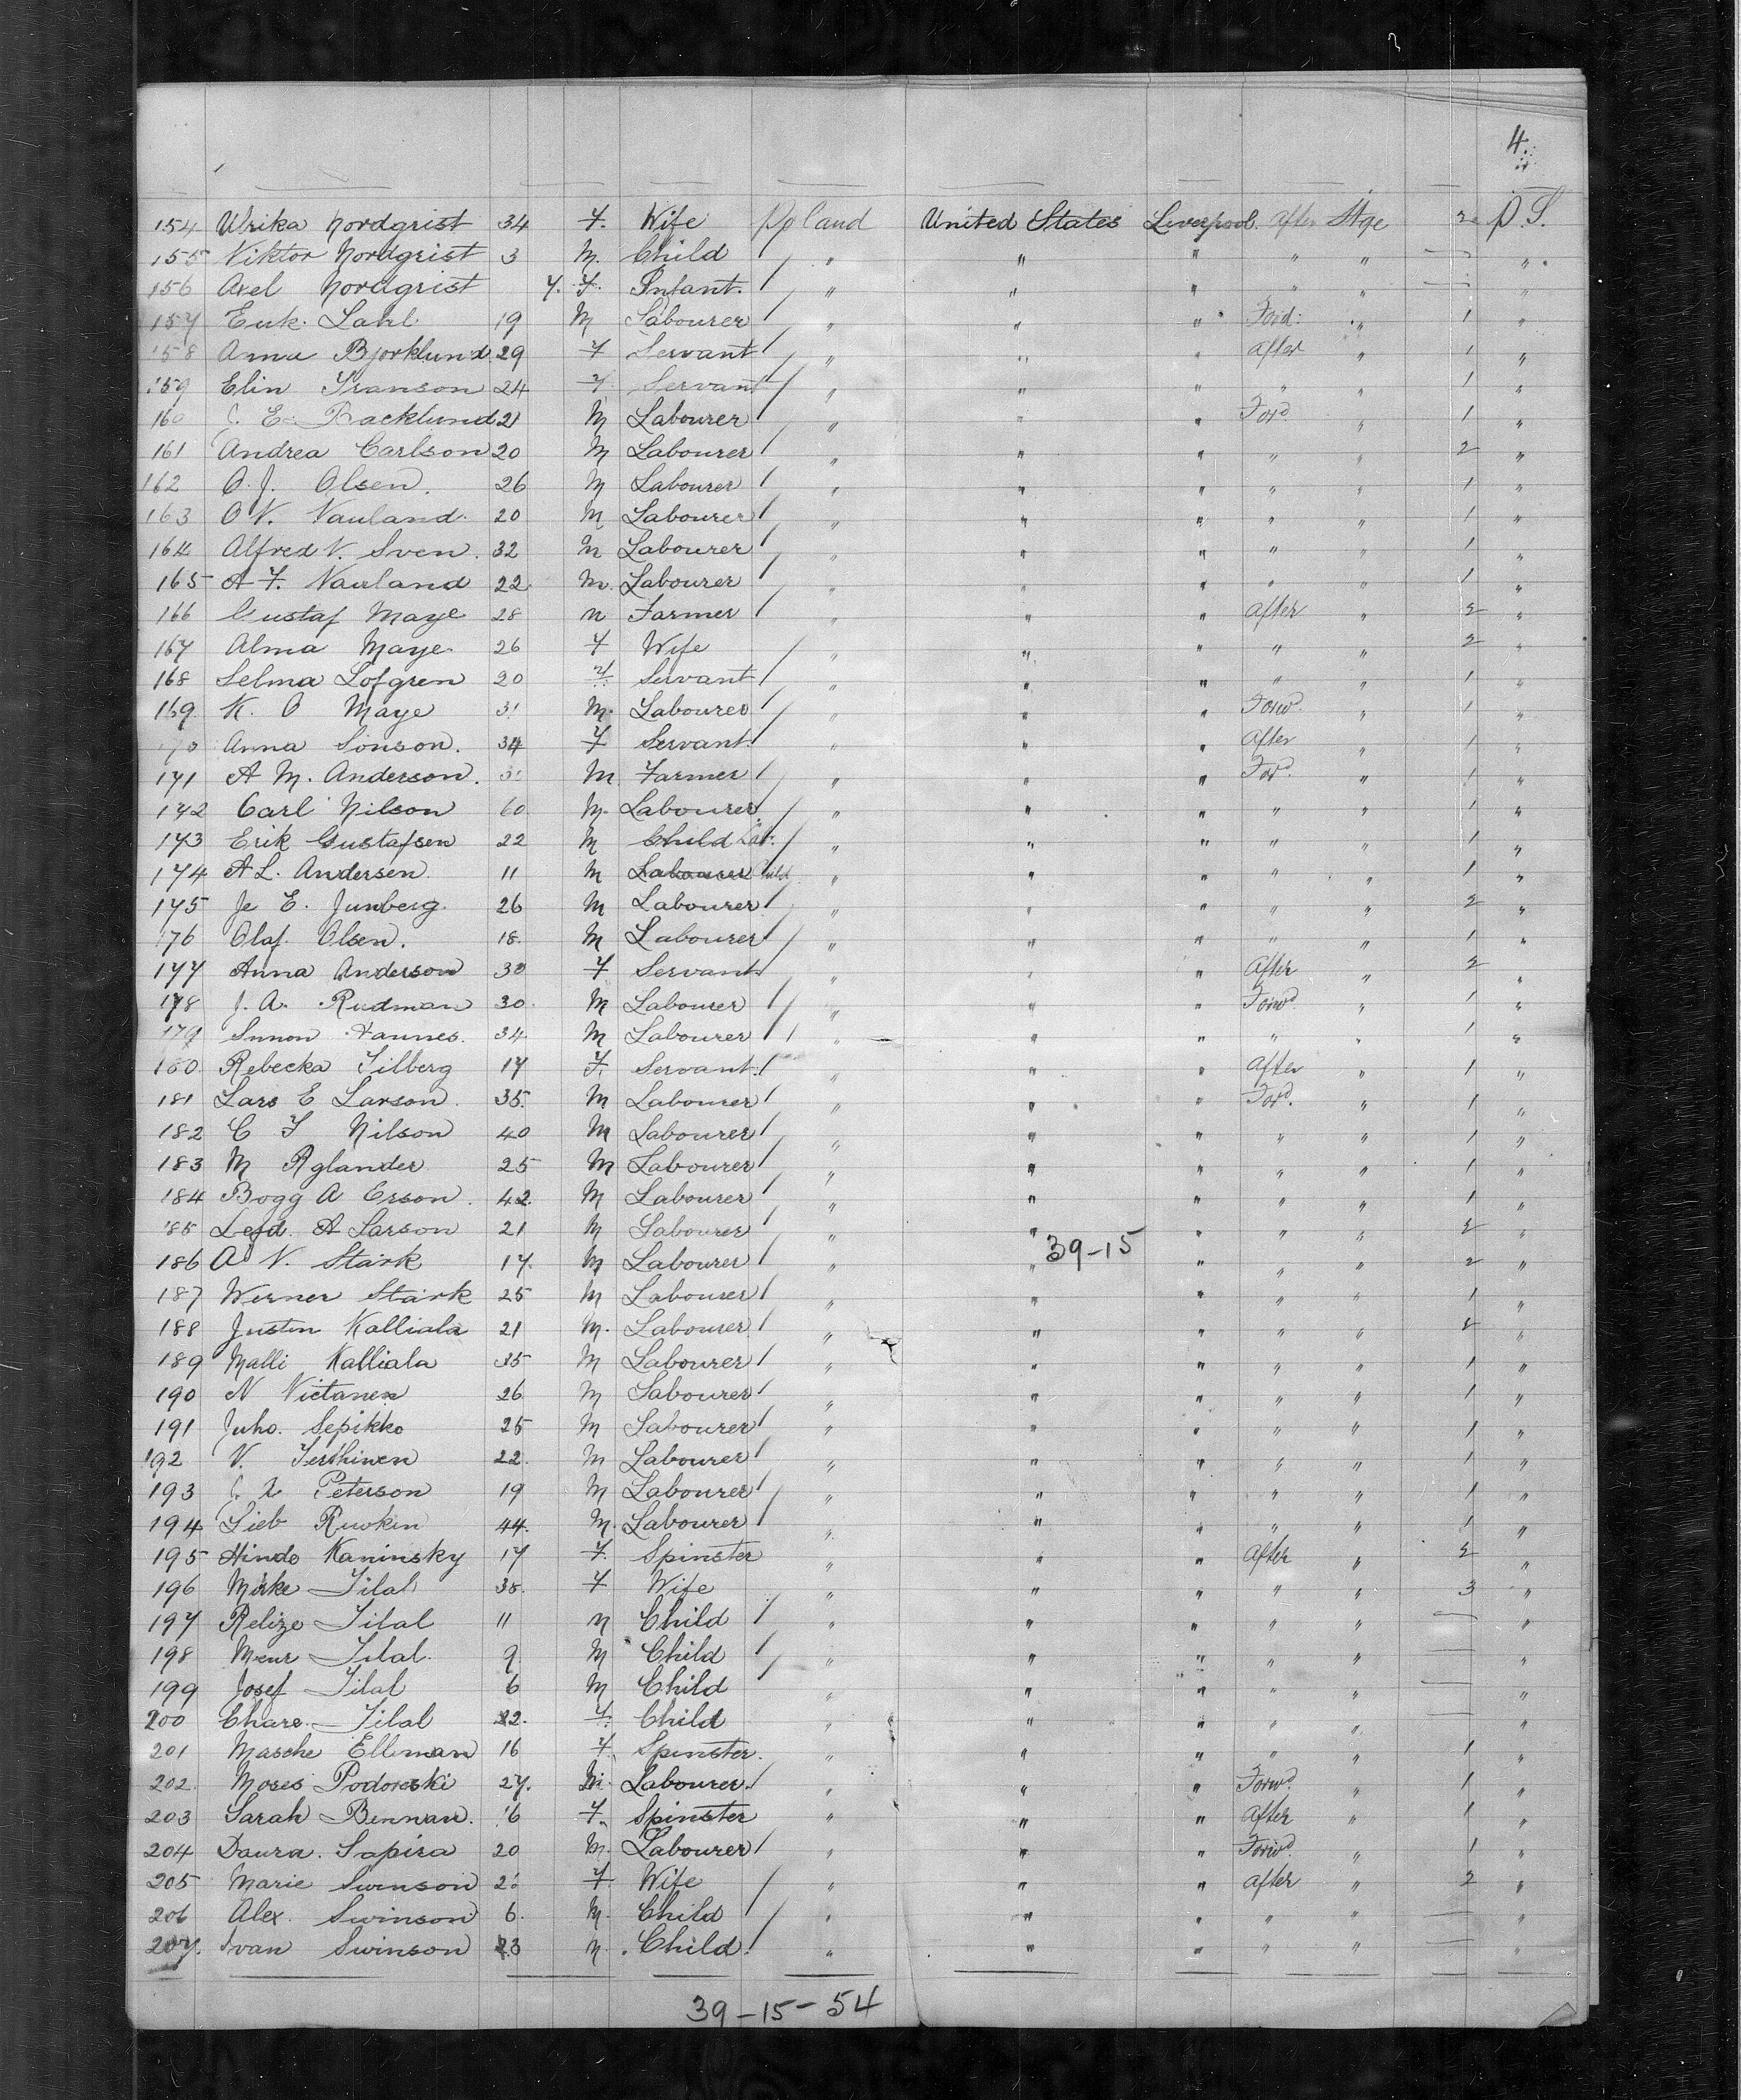 4.
154 Ulrika Nordgrist 34 F. Wife United States Liverpool after Stge 2 P.S.
155 Viktor Nordgrist 3 M. Child " " " " " — "
156 Axel Nordgrist 7. F. Infant. " " " " " — "
157 Lahl 19 M Labourer " " " Ford: " 1 "
158 Anna Bjorklund 29 F Servant " " " after " 1 "
159 Elin Franson 24 F Servant " " " " " 1 "
160 E. Backlund 21 M Labourer " " " Ford. " 1 "
161 Andrea Carlson 20 M Labourer " " " " " 2 "
162 O. J. Olsen. 26 M Labourer " " " " " 1 "
163 O V. Nauland. 20 M Labourer " " " " " 1 "
164 Alfred V. Sven. 32 M Labourer " " " " " 1 "
165 A F. Nauland 22 M. Labourer " " " " " 1 "
166 Gustaf Maye 28 M Farmer " " " after " 2 "
167 Alma Maye 26 F Wife " " " " " 2 "
168 Selma Lofgren 20 F Servant " " " " " 1 "
169 K. O Maye 31 M. Labourer " " " Forwd. " 1 "
170 Anna Sonson. 34 F Servant " " " After " 1 "
171 A M. Anderson. M. Farmer " " " Ford. " 1 "
172 Carl Nilson 60 M. Labourer " " " " " 1 "
173 Erik Gustafsen 22 M Child Lab. " " " " " 1 "
174 A L. Andersen 11 M Labourer Child " " " " " 1 "
175 Je E. Junberg. 26 M Labourer " " " " " 2 "
176 Olaf. Olsen. 18. M Labourer " " " " " 1 "
177 Anna Anderson 30 F Servant " " " After " 2 "
178 J. A. Rudman 30. M Labourer " " " Forwd " 1 "
179 Hannes. 34 M Labourer " " " " " 1 "
180 Rebecka Filberg 17 F. Servant. " " " After " 1 "
181 Lars E Larson. 35. M Labourer " " " Ford. " 1 "
182 C F Nilson 40 M Labourer " " " " " 1 "
183 M Rylander 25 M Labourer " " " " " 1 "
184 Bogg A Erson. 42. M Labourer " " " " " 1 "
185 A Larson 21 M Labourer " " " " " 2 "
186 A V. Stark 17. M Labourer " " 39-15 " " " 2 "
187 Werner Stark 25 M Labourer " " " " " 1 "
188 Justin Kalliala 21 M. Labourer " " " " " 2 "
189 Malli Kalliala 35 M Labourer " " " " " 1 "
190 N Victanen 26 M Labourer " " " " " 1 "
191 Juho. Sepikko 25 M Labourer " " " " " 1 "
192 V. 22. M Labourer " " " " " 1 "
193 Peterson 19 M Labourer " " " " " 1 "
194 Lieb Ruokin 44. M. Labourer " " " " " 1 "
195 Hinde Kaninsky 17 F. Spinster " " " After " 2 "
196 Mirke Filal 38. F Wife " " " " " 3 "
197 Relize Filal 11 M Child " " " " " — "
198 Filal 9 M Child " " " " " — "
199 Josef Filal 6 M Child " " " " " — "
200 Chare Filal 2. F. Child " " " " " — "
201 Masche Elleman 16 F. Spinster. " " " " " 1 "
202. Moses Podoreski 27. M. Labourer. " " " Forwd. " 1 "
203 Sarah Benman. 16 F. Spinster " " " After " 1 "
204 Daura. Sapira 20 M. Labourer " " " Forwd. " 1 "
205 Marie Swinson F. Wife " " " after " 2 "
206 Alex. Swinson 6. M. Child " " " " " — "
207. Ivan Swinson 3 M. Child. " " " " " — "
39-15-54